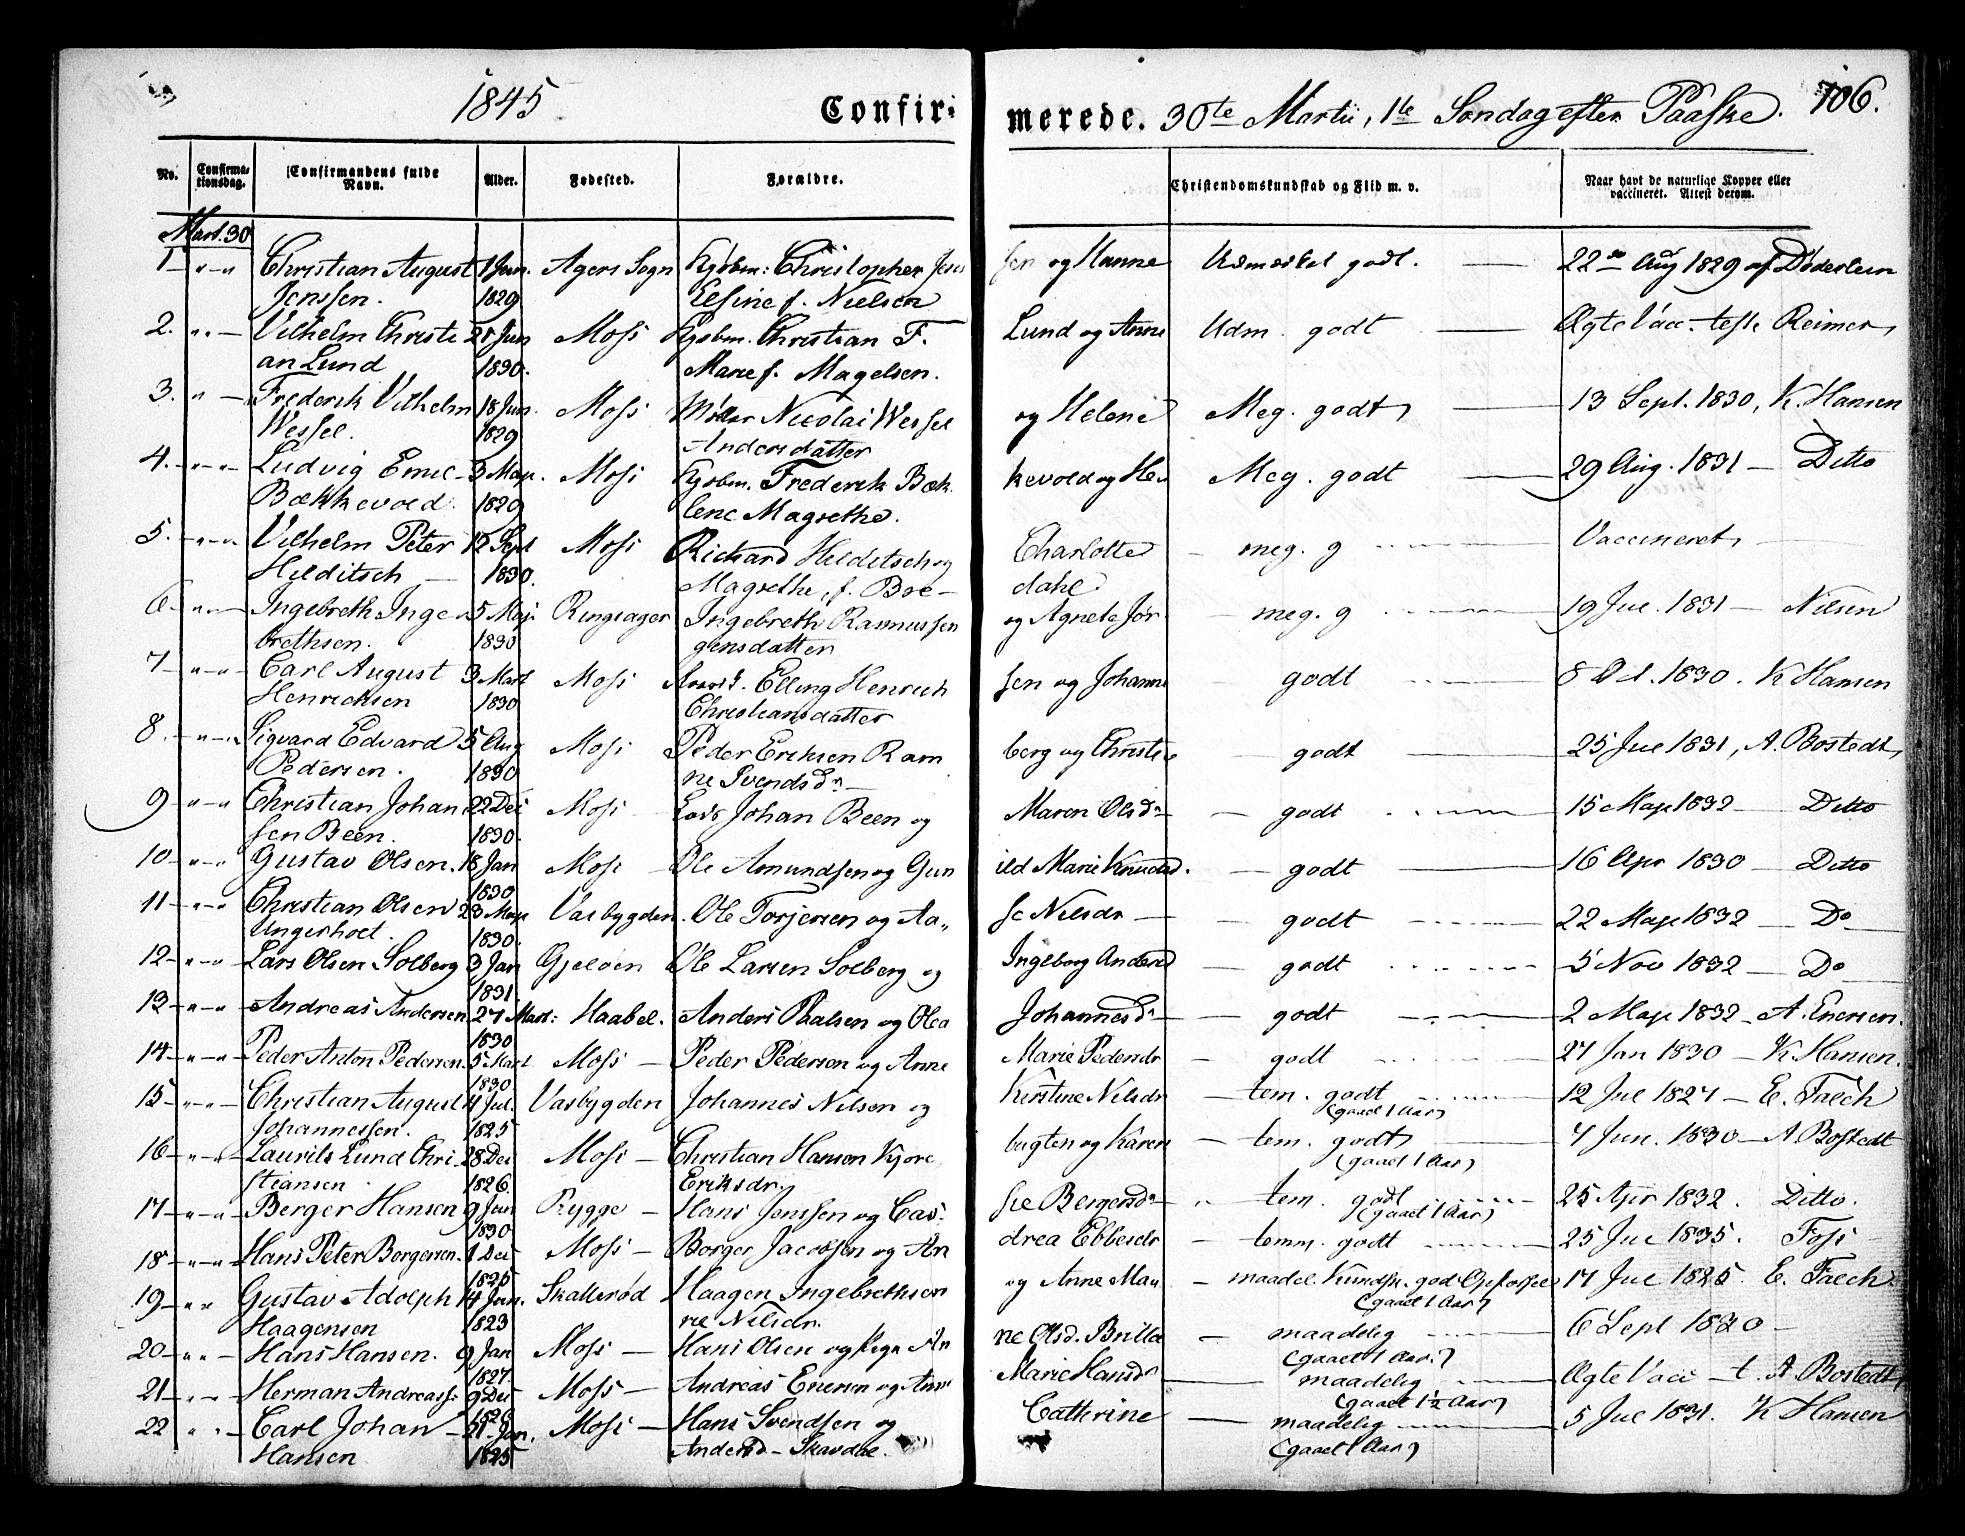 1845 Confir= merede. 30te Martii, 1te Søndag efter Paaske. 106.
No. Confirma-tionsdag. Confirmandens fulde Navn. Alder. Fødested. Forældre. Christendomskundskab og Flid m. v. Naar havt de naturlige Kopper eller vaccineret. Attest derom.
Mart. 30
1 Christian August 1 Jun. Agers Sogn Kjøbm: Christopher Jens sen og Hanne Udmærket godt. 22de Aug 1829 af Døderlein
Jenssen. 1829 Elsine f. Nielsen
2. Vilhelm Christi 21 Jun Moss Kjøbm. Christian F. Lund og Anne Udm. godt Ægte Vac. test. Reimer
an Lund 1830. Marie f. Magelsen.
3. Frederik Vilhelm 18 Jun. Moss Møller Nicolai Wessel og Helene Meg. godt 13 Sept. 1830, K. Hansen
Wessel. 1829 Andersdatter
4. Ludvig Emil 3 Maje. Moss Kjøbm. Frederik Bæk kevold og He Meg. godt 29 Aug. 1831 Ditto
Bækkevold. 1829 lene Magrethe.
5. Vilhelm Peter 12 Sept Moss Richard Helditsch og Charlotte meg. g Vaccineret
Helditsch 1830. Magrethe, f. Bre dahl
6 Ingebreth Inge 5 Maj. Ringsager Ingebreth Rasmussen og Agnete Jør meg. g 19 Jul. 1831 Nilsen
brethsen. 1830 gensdatter
7 Carl August 3 Mart Moss Elling Henrich sen og Johanne godt 8 Oct. 1830. K Hansen
Henrichsen 1830 Christiansdatter
8. Sigvard Edvard 5 Aug Moss Peder Eriksen Ram berg og Christi godt 25 Jul 1831, A. Bostedt
Pedersen. 1830 ne Svendsdr
9 Christian Johan 22 Dec Moss Johan Been og Maren Olsdr godt 15 Maje 1832 Ditto
sen Been. 1830.
10 Gustav Olsen. 18 Jan Moss Ole Amundsen og Gun ild Marie Knudsd. godt 16 Apr 1830 Ditto
1830
11 Christian Olsen 23 Maje Vasbygden. Ole Torjersen og Aa,, se Nilsdr godt 22 Maje 1832 Do
Ungerholt. 1830.
12 Lars Olsen Solberg 3 Jan Gjeløen Ole Larsen Solberg og Ingeborg Andersd godt 5 Nov 1832 Do
1831
13 Andreas Andersen 27 Mart: Haabøl. Anders Paalsen og Olea Johannesdr godt 2 Maje 1832 A. Enersen.
1830
14 Peder Anton Pedersen. 5 Mart Moss Peder Pedersen og Anne Marie Pedersdr godt 27 Jan 1830 K Hansen.
1830
15 Christian August 4 Jul. Vasbygden Johannes Nilsen og Kirstine Nilsdr tem. godt 12 Jul 1827 E. Falch
Johannessen. 1825 (gaaet 1 Aar)
16 Laurits Lund Chri 28 Dec Moss Christian Hansen Kjøre bugten og Karen tem. godt 7 Jun. 1830 A Bostedt
stiansen 1826. Eriksdr. (gaaet 1 Aar)
17 Berger Hansen 9 Jan Rygge Hans Jenssen og Cas: sie Bergersdr tem. godt 25 Apr 1832. Ditto.
1830 (gaaet 1 Aar)
18 Hans Peter Borgersen. 1 Dec Moss Borger Jacobsen og An drea Ebbesdr temm. godt 25 Jul 1835. Foss
1825
19 Gustav Adolph 14 Jan. Skallerød Haagen Ingebrethsen og Anne Ma maadel. Kundsk. god Opførsel 17 Jul 1825 E. Falch
Haagensen 1823 rie Nilsdr. (gaaet 1 Aar)
20 Hans Hansen. 9 Jan Moss Hans Olsen og An ne Olsd. Brille maadelig 6 Sept 1830
1827 (gaaet 1 Aar.)
21 Herman Andreass: 9 Dec Moss Andreas Enersen og Anne Marie Hansdr maadelig Ægte Vacc t. A Bostedt
(gaaet 1 1/2 Aar)
22 Carl Johan 21 Jan. Moss Hans Svendsen og Cathrine maadelig 5 Jul 1831. K Hansen
Hansen 1825 Andersd Skavdal. (gaaet 1 Aar)